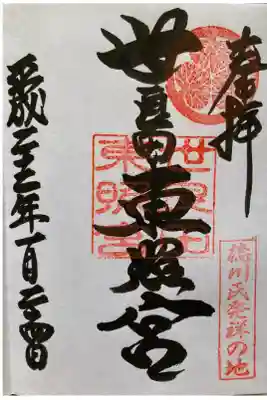 奉拝
徳川氏発祥の地
世良田東照宮
世良田
東照宮
平成二十三年一月二十四日